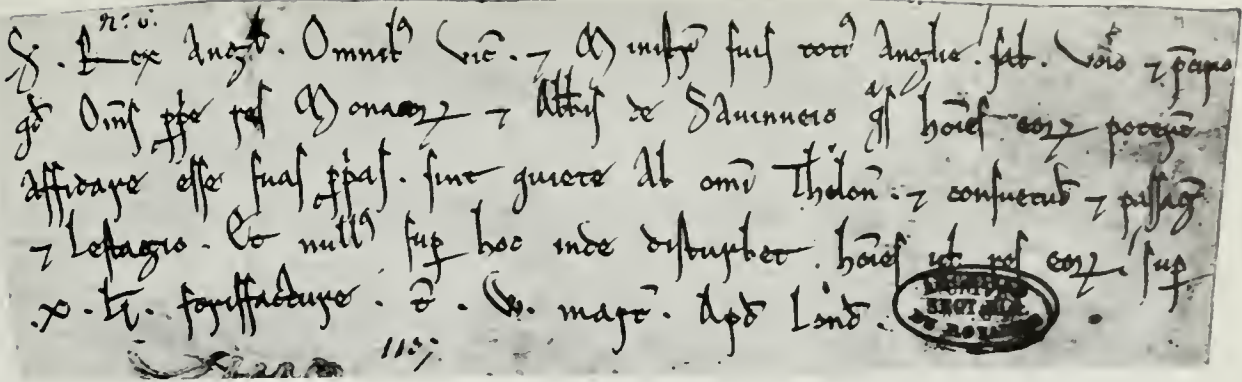 nº. v.
S. Rex Angl̃. Omnib⁹ vic̃. ⁊ Ministr̃ suis toti⁹ Anglie. sal̃. Volo ⁊ p̃cipio
qd̃ Om̃s ꝓp̃e res Monacoꝝ ⁊ Abb̃is de Sauinneio q̃s hoĩes eoꝝ poterũt
affidare esse suas ꝓp̃as. sint quiete Ab omĩ Thelon̄. ⁊ consuetud̃ ⁊ passag̃
⁊ Lestagio. Et null⁹ sup̱ hoc inde disturbet hoĩes ul̃ res eoꝝ. sup̱
.x. lĩ. forisfacture. T̃. W. mart̃. Apd̃ Lond̃.
1137